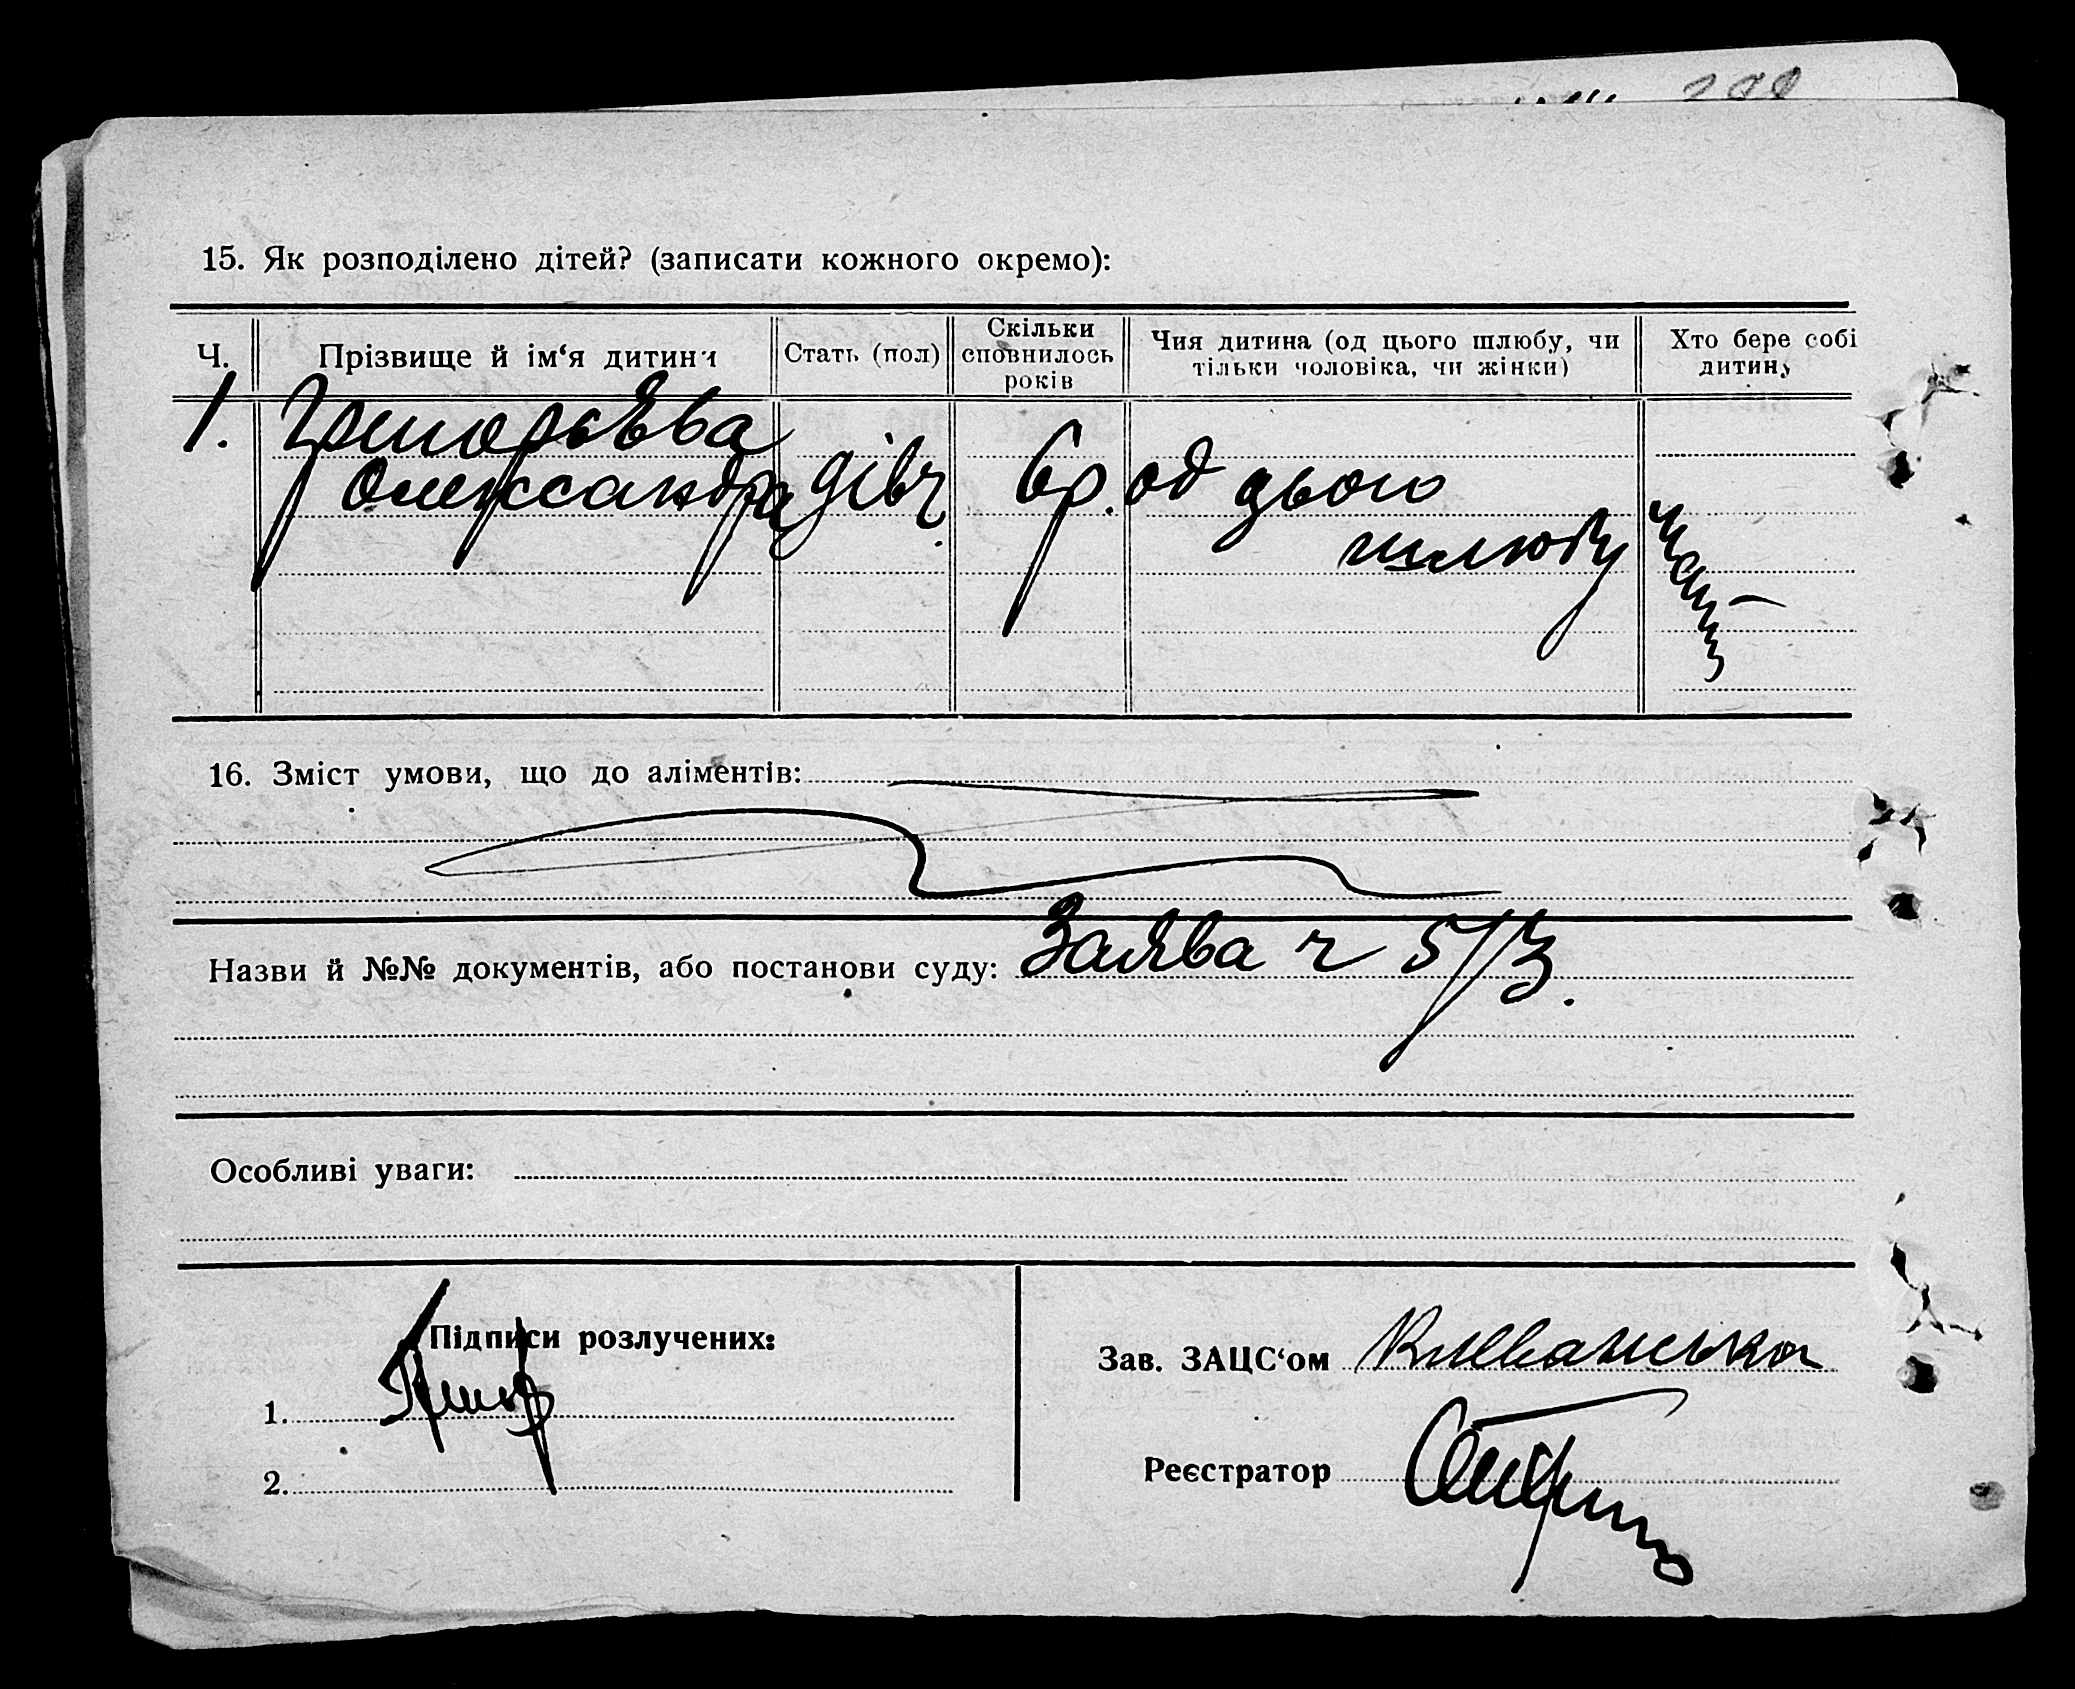 15. Як розподілено дітей? (записати кожного окремо):
Ч. Прізвище й ім‘я дитини Стать (пол) Скільки сповнилось років Чия дитина (од цього шлюбу, чи тільки чоловіка, чи жінки) Хто бере собі дитину
1. Григорьєва
Олександра дівч. 6р. од цього
шлюбу
16. Зміст умови, що до аліментів:
Назви й №№ документів, або постанови суду: Заява ч 5/3.
Особливі уваги:
Підписи розлучених:
1. Григор
2.
Зав. ЗАЦС‘ом
Реєстратор